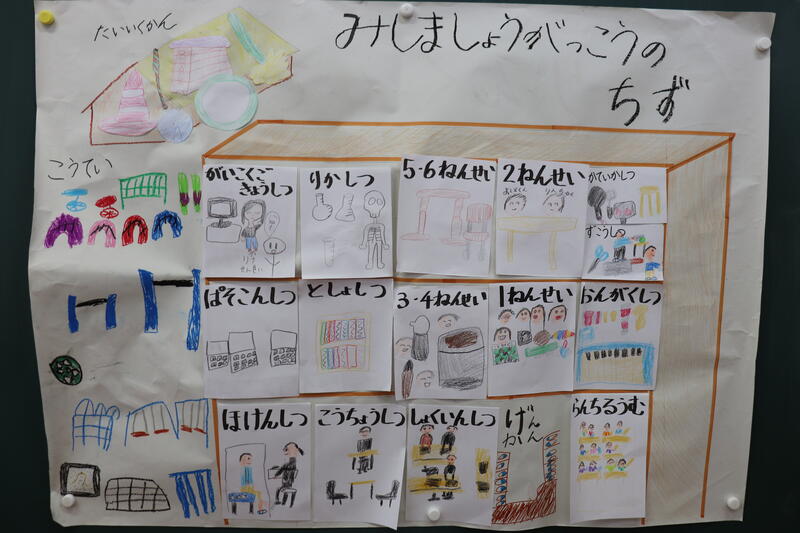 たいいくかん
みしましょうがっこうの
ちず
こうてい
がいこくご
きょうしつ
りかしつ
5・6ねんせい
2ねんせい
かていかしつ
ずこうしつ
ぱそこんしつ
としょしつ
3・4ねんせい
1ねんせい
おんがくしつ
ほけんしつ
こうちょうしつ
しょくいんしつ
げん
かん
らんちるうむ